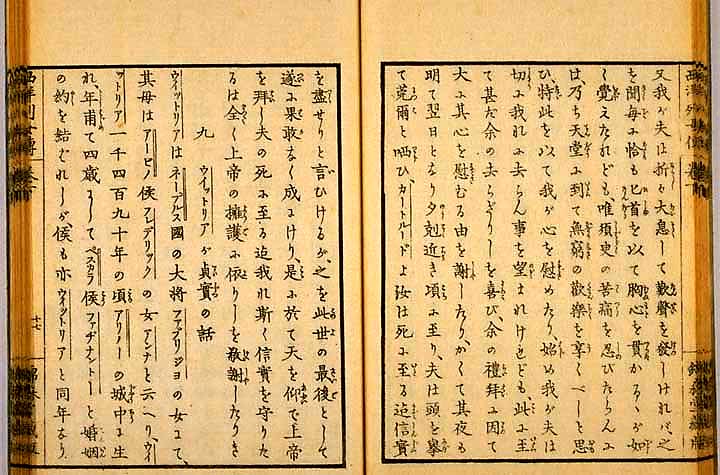 又我が夫は折々大息して歎聲を發しけれバ之
を聞毎に恰も匕首を以て胸心を貫かるゝが如
く覺えたれども、唯須臾の苦痛を忍びたらんに
は、乃ち天堂に到て無窮の歡樂を享くべしと思
ひ、特此を以て我が心を慰めたり、始め我が夫は
切に我れに去らん事を望まれけれども、此に至
て甚だ余の去らざりしを喜び、余の禮拜に因て
大に其心を慰むる由を謝したり、かくて其夜も
明て翌日となり夕剋近き頃に至り、夫は頭を擧
て莞爾と哂ひ、カートルードよ汝は死に至る迄信實
を盡せりと言ひけるが、之を此世の最後として
遂に果敢なく成にけり、是に於て天を仰で上帝
を拜し夫の死に至る迄我れ斯く信實を守りた
るは全く上帝の擁護に依りしを敬謝したりき
九 ウイットリアが貞實の話
ウイットリアはネープルス國の大將ファブリジョの女にて、
其母はアービノ侯フレデリックの女アンナと云へり、ウイ
ットリア一千四百九十年の頃アリノーの城中に生
れ、年甫て四歳にしてペスカラ侯ファヂナントーと婚姻
の約を結ばれしが、侯も亦ウイットリアと同年なり
西洋列女傳 卷一
十七